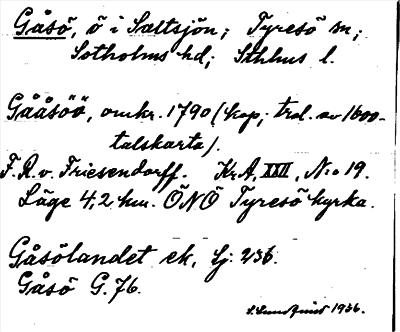 Gåsö, ö i Saltsjön; Tyresö sn;
Sotholms hd; Sthlms l.
Gååsöö, omkr. 1790 (kop; trol. av 1600-
talskarta).
F. R. v. Friesendorff. Kr.A, XXII, N:o 19.
Läge 4,2 km. ÖNÖ Tyresö kyrka.
Gåsölandet ek, Lj: 236.
Gåsö G. 76.
S. Lundquist 1936.